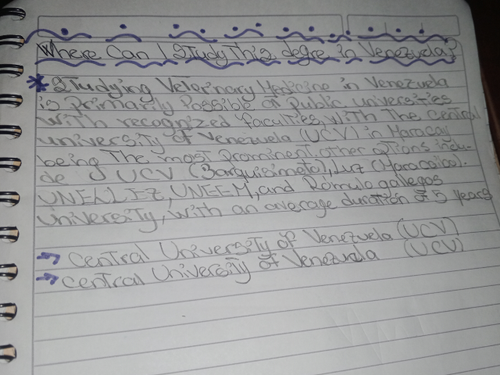 Where Can I Study This degre in Venezuela?
* Studying Veterinary Medicine in Venezuela
is Primarily Possible at Public universities
with recognized faculties, with The central
university of Venezuela (UCV) in Maracay
being The most Prominent other options inclu-
de UCV (Barquisimeto), LUZ (Maracaibo).
UNELLEZ, UNEFM, and Romulo gallegos
University, with an average duration of 5 years
→ Central University of Venezuela (UCV)
→ Central University of Venezuela (UCV)